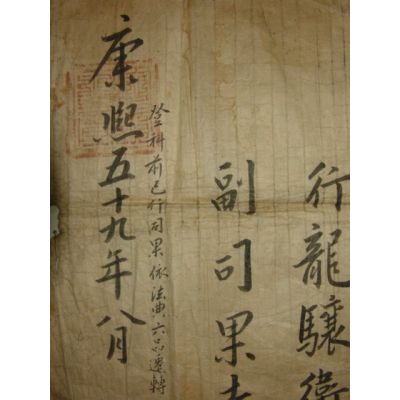 行龍驤衛
副司果
登科前已行司果依法典六品遷轉
康熙五十九年八月